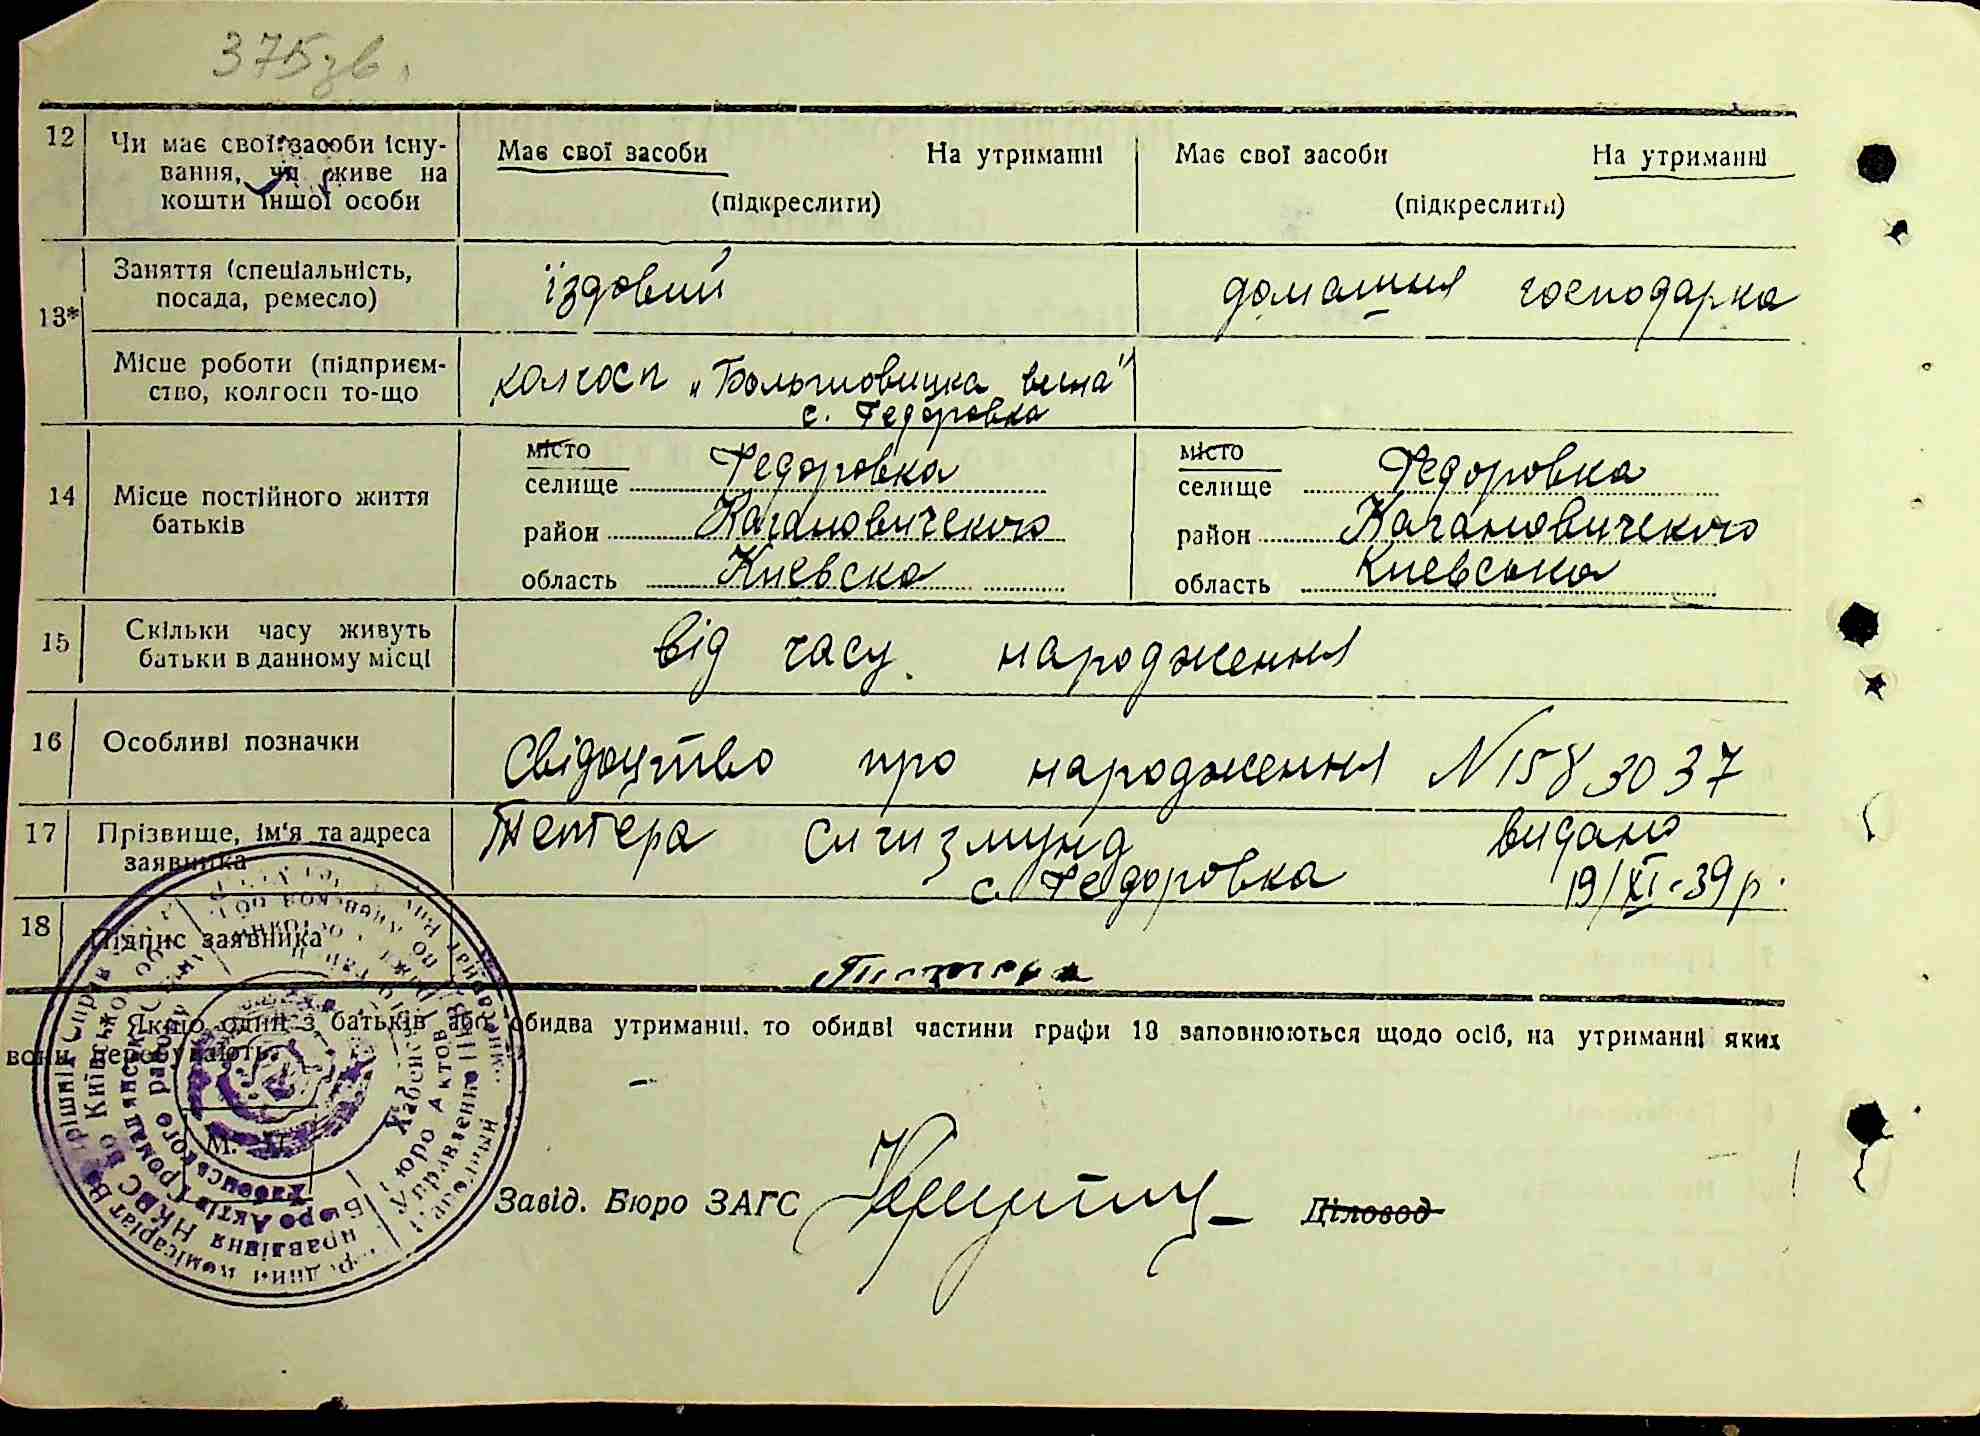 375зв.
12 Чи має свої засоби існу- Має свої засоби На утриманні Має свої засоби На утриманні
вання, чи живе на
кошти іншої особи (підкреслити) (підкреслити)
13* Заняття (спеціальність, їздовий домашня господарка
посада, ремесло)
Місце роботи (підприєм- колгосп „Большовицка весна"
ство, колгосп то-що с. Федоровка
місто місто
14 Місце постійного життя селище Федоровка селище Федоровка
батьків район Кагановичского район Кагановичского
область Киевска область Киевська
15 Скільки часу живуть від часу народження
батьки в данному місці
16 Особливі позначки Свідоцтво про народження N 1583037
17 Прізвище, ім'я та адреса Тетера Сигизмунд видано
заявника с. Федоровка 19/XI-39 р.
18 Підпис заявника
Якщо один з батьків або обидва утриманці, то обидві частини графи 13 заповнюються щодо осіб, на утриманні яких
вони перебувають.
М. П.
Завід. Бюро ЗАГС Діловод